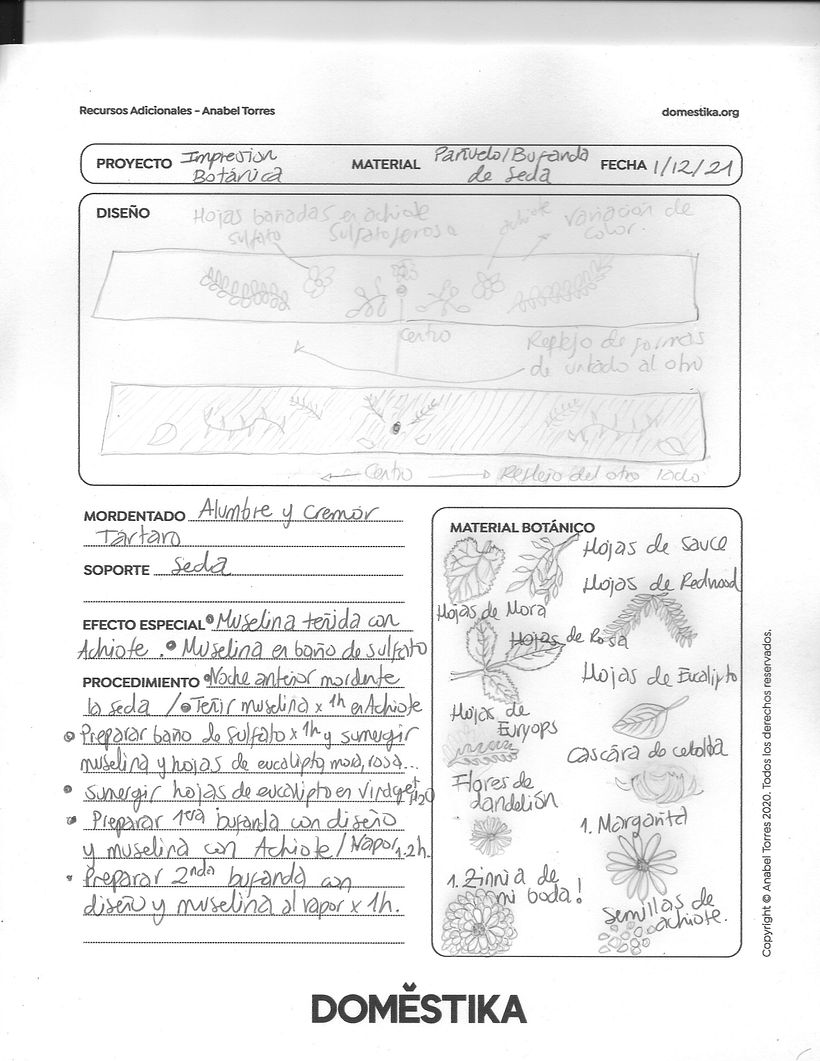 Recursos Adicionales – Anabel Torres
domestika.org
PROYECTO Impresion Botánica
MATERIAL Pañuelo/Bufanda de seda
FECHA 1/12/21
DISEÑO
Hojas bañadas en achiote
sulfato
Sulfato ferroso
achiote
variación de color.
Centro
Reflejo de formas
de un lado al otro
Centro
Reflejo del otro lado
MORDENTADO Alumbre y Cremor
Tártaro
SOPORTE Seda
EFECTO ESPECIAL • Muselina teñida con
Achiote. • Muselina en baño de sulfato
PROCEDIMIENTO • Noche anterior mordente
la seda / • Teñir muselina x 1h en Achiote
• Preparar baño de sulfato x 1h y sumergir
muselina y hojas de eucalipto, mora, rosa...
• sumergir hojas de eucalipto en vinagre + H2O
• Preparar 1era bufanda con diseño
y muselina con Achiote / Vapor 1.2h.
• Preparar 2nda bufanda con
diseño y muselina al vapor x 1h.
MATERIAL BOTÁNICO
Hojas de Sauce
Hojas de Redwood
Hojas de Mora
Hojas de Rosa
Hojas de Eucalipto
Hojas de
Euryops
Cascára de cebolla
Flores de
dandelión
1. Margarita
1. Zinnia de
mi boda!
Semillas de
achiote.
Copyright © Anabel Torres 2020. Todos los derechos reservados.
DOMĚSTIKA